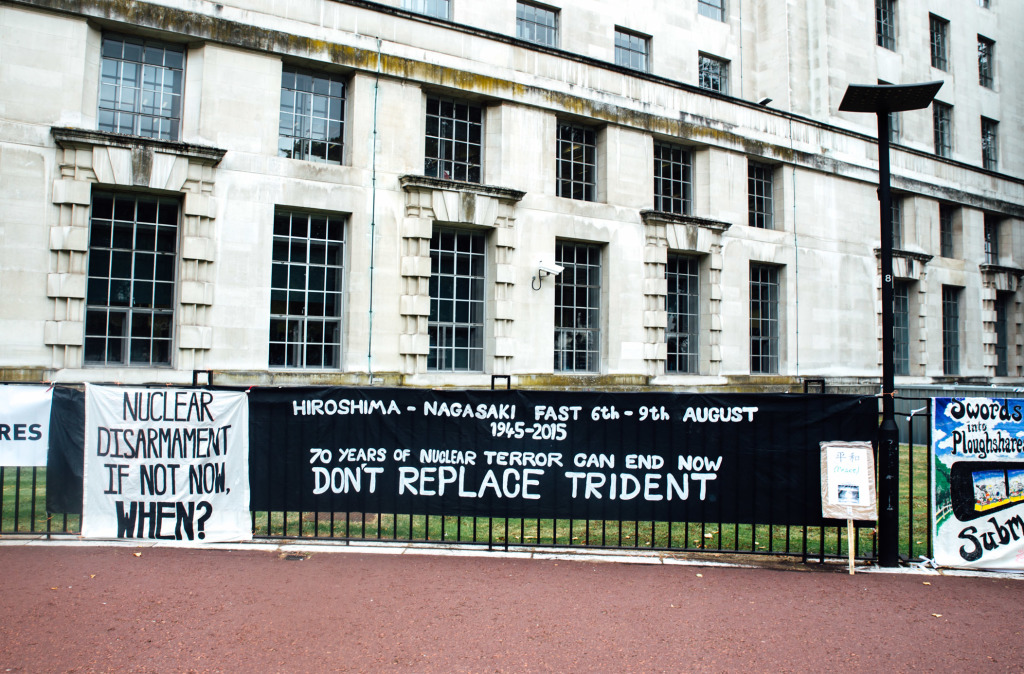 RES
NUCLEAR
DISARMAMENT
IF NOT NOW,
WHEN?
HIROSHIMA - NAGASAKI FAST 6th - 9th AUGUST
1945-2015
70 YEARS OF NUCLEAR TERROR CAN END NOW
DON'T REPLACE TRIDENT
平和
8
Swords
into
Ploughshares
Subm